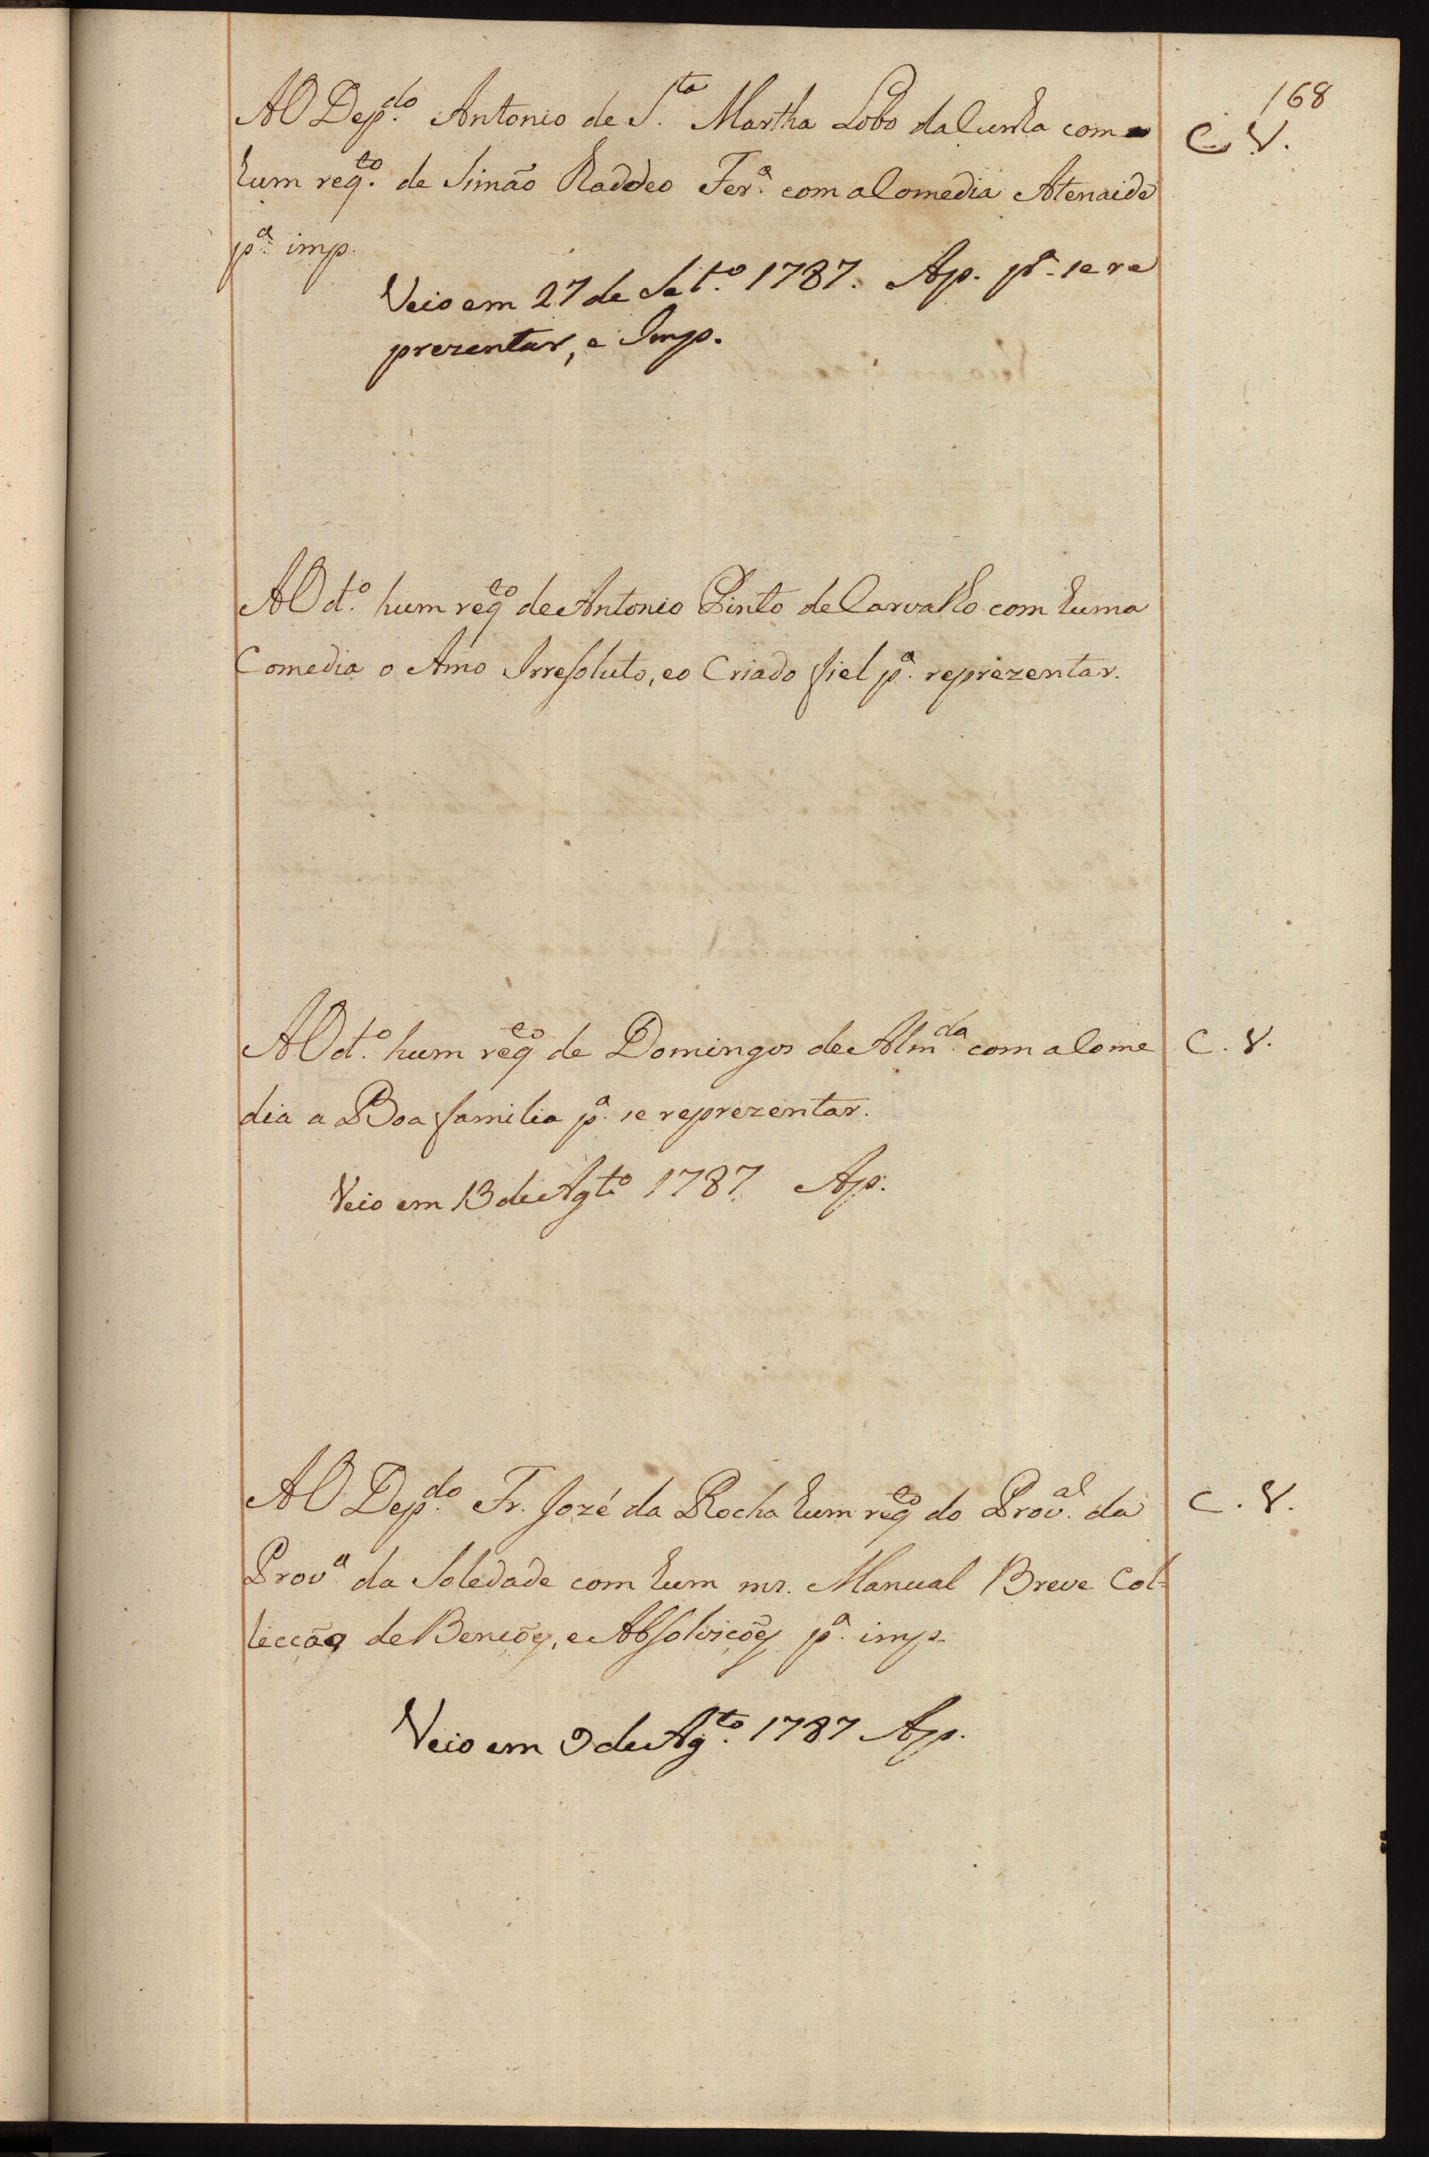 168
AO Dep.do Antonio de S.ta Martha Lobo da Cunha com C. V.
hum req.to de Simão Raddeo Fer.a com a Comedia Atenaide
p.a imp.
Veio em 27 de Set.o 1787. Ap. p.a se re
prezentar, e Imp.
AO d.o hum req.to de Antonio Pinto de Carvalho com huma
Comedia o Amo Irresoluto, e o Criado fiel p.a reprezentar.
AO d.o hum req.to de Domingos de Alm.da com a Come C. V.
dia a Boa familia p.a se reprezentar.
Veio em 13 de Agto 1787 Ap.
AO Dep.do Fr. Jozé da Rocha hum req.to do Prov.al da C. V.
Prov.a da Soledade com hum ms. Manual Breve Col-
lecção de Bençoẽs, e Absolviçoẽs p.a imp.
Veio em 9 de Ag.to 1787 Ap.